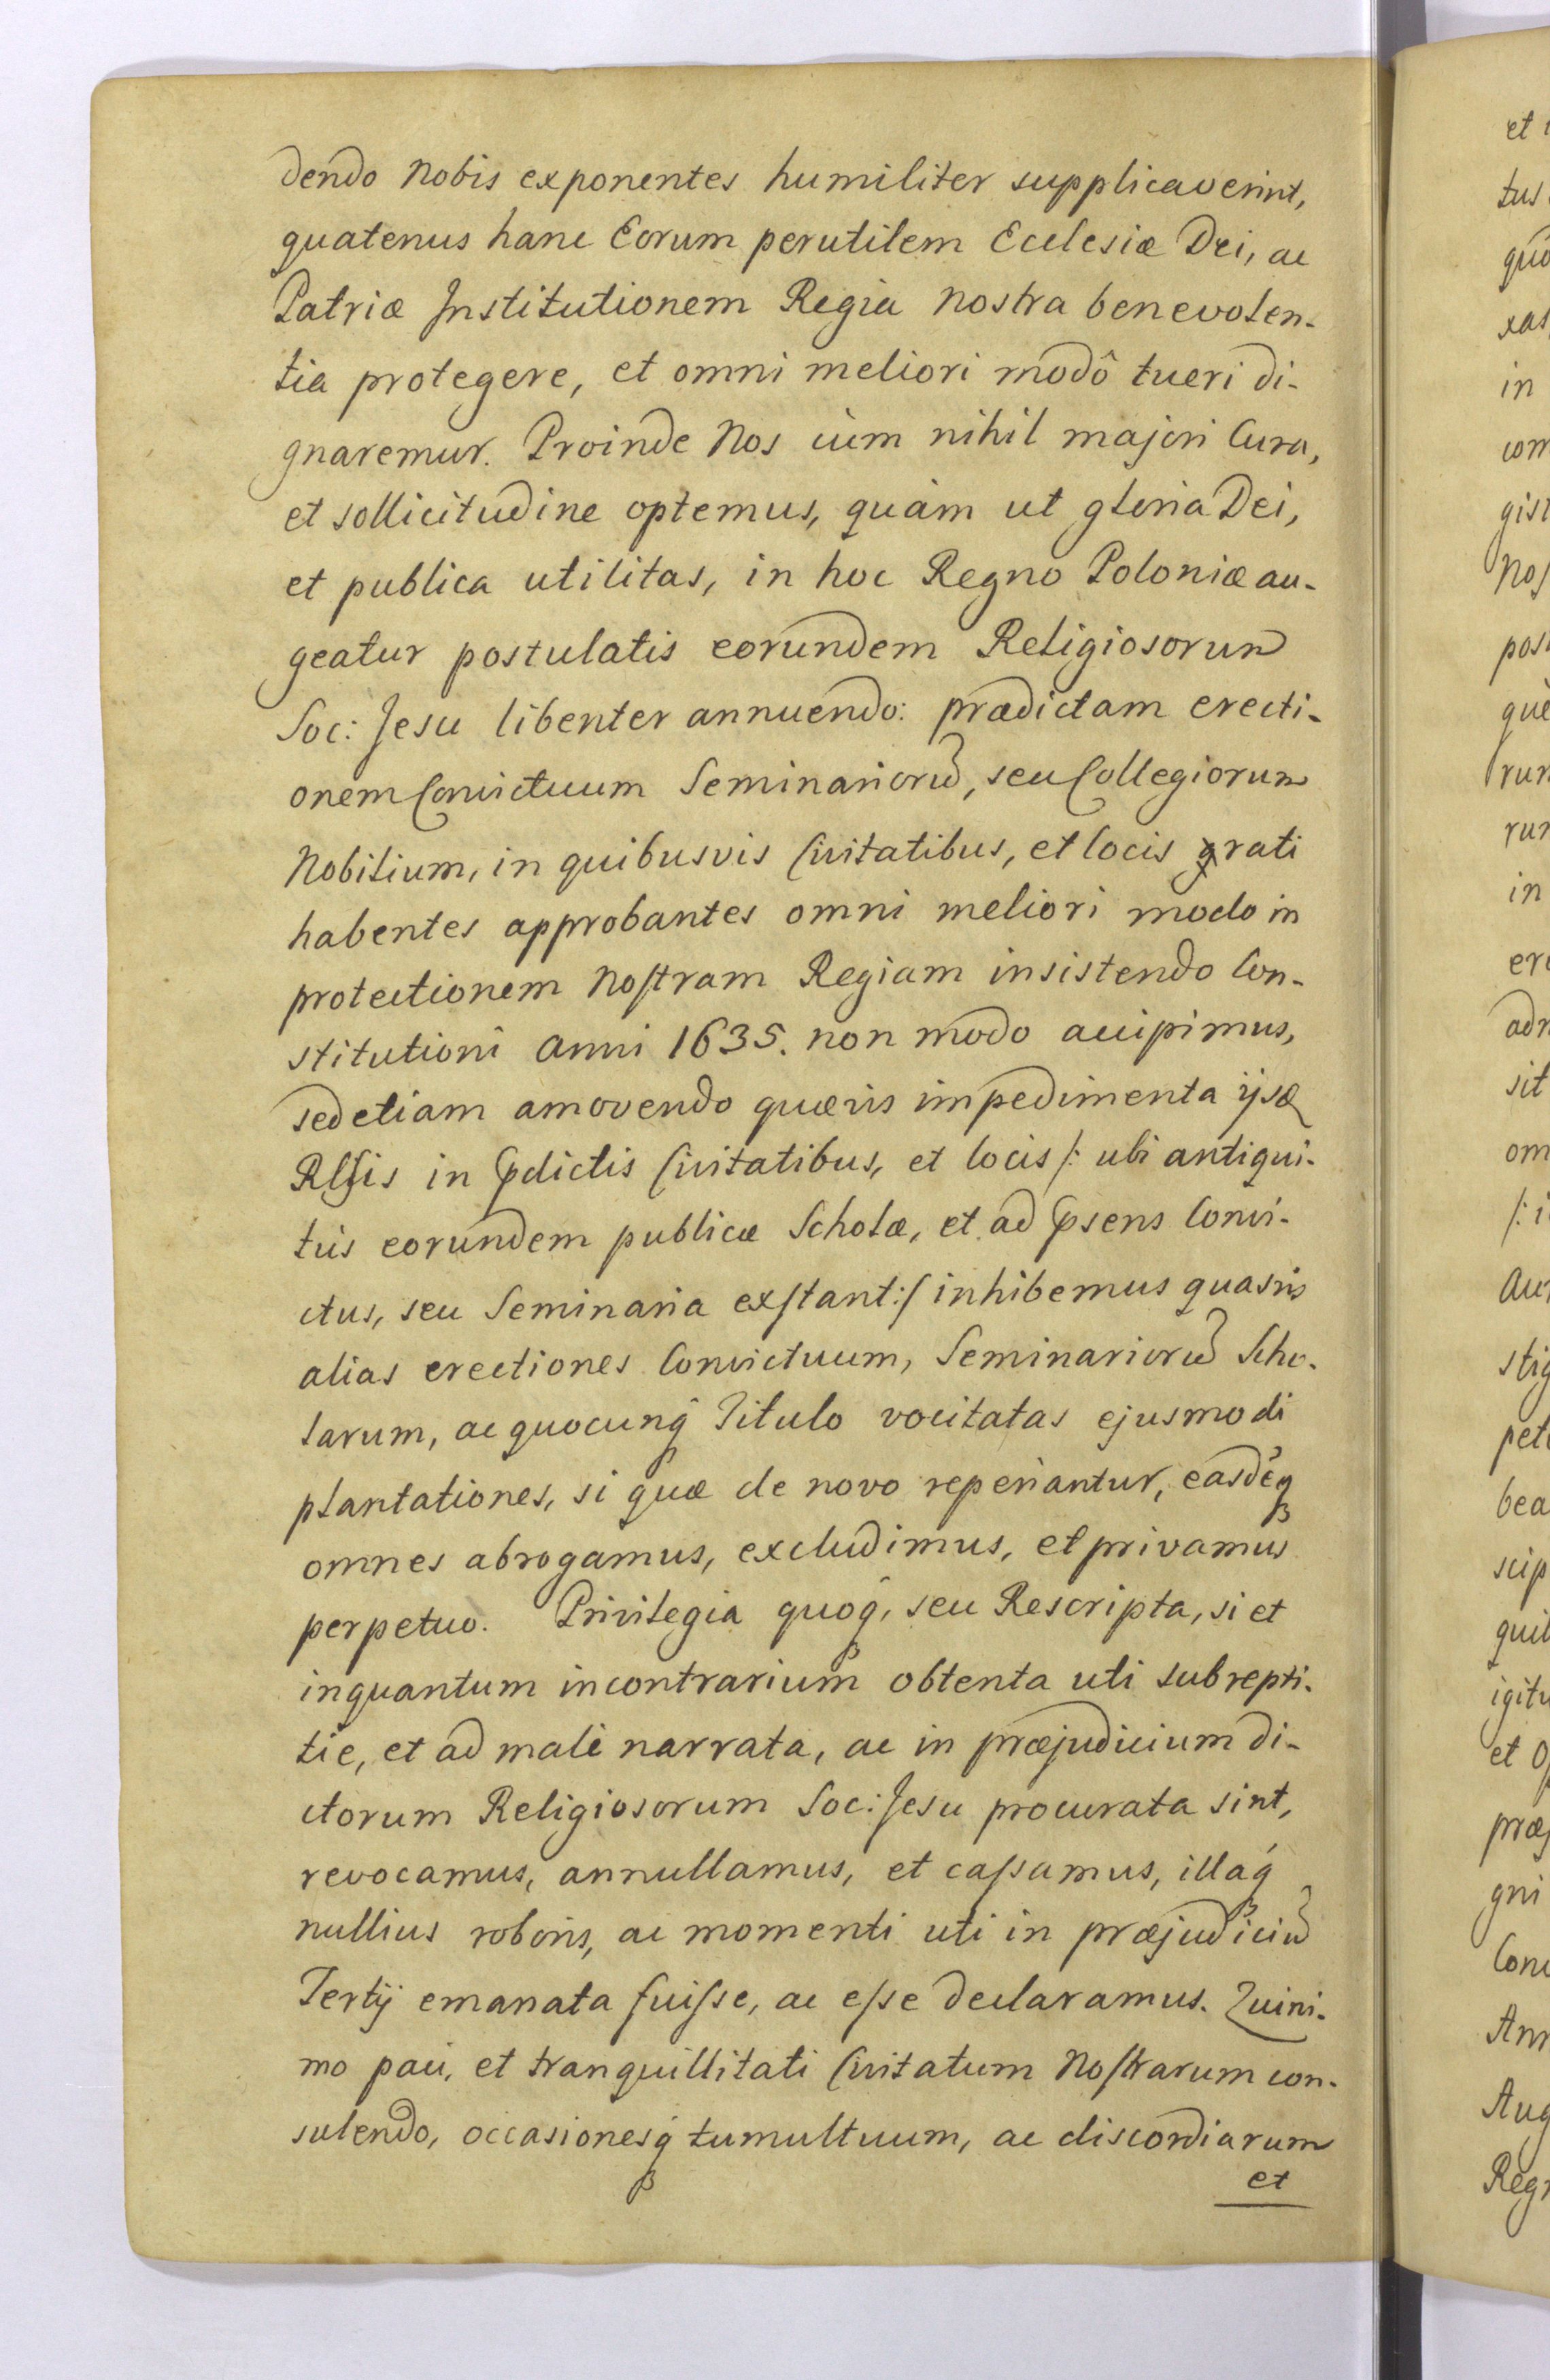 dendo Nobis exponentes humiliter supplicaverint,
quatenus hanc Eorum perutilem Ecclesiæ Dei, ac
Patriæ Institutionem Regia Nostra benevolen-
tia protegere, et omni meliori modô tueri di-
gnaremur. Proinde Nos cùm nihil majori Cura,
et sollicitudine optemus, quàm ut gloria Dei,
et publica utilitas, in hoc Regno Poloniæ au-
geatur postulatis eorundem Religiosorum
Soc: Jesu libenter annuendo: prædictam erecti-
onem Convictuum Seminariorũ, seu Collegiorum
Nobilium, in quibusvis Civitatibus, et locis rati
habentes approbantes omni meliori modo in
protectionem Nostram Regiam insistendo Con-
stitutioni Anni 1635. non modo accipimus,
sed etiam amovendo quævis impedimenta ijsd
Rlgsis in pdictis Civitatibus, et locis /: ubi antiqui-
tùs eorundem publicæ Scholæ, et ad psens Convi-
ctus, seu Seminaria exstant :/ inhibemus quasvis
alias erectiones Convictuum, Seminariorũ Scho-
larum, ac quocunq́ Titulo vocitatas ejusmodi
plantationes, si quæ de novo reperiantur, easdéq
omnes abrogamus, excludimus, et privamus
perpetuo. Privilegia quoq́, seu Rescripta, si et
inquantum incontrarium obtenta uti subrepti-
tie, et ad malè narrata, ac in præjudicium di-
ctorum Religiosorum Soc: Jesu procurata sint,
revocamus, annullamus, et cassamus, illaq́
nullius roboris, ac momenti uti in præjudiciũ
Tertij emanata fuisse, ac esse declaramus. Quini-
mo paci, et tranquillitati Civitatum Nostrarum con-
sulendo, occasionesq́ tumultuum, ac discordiarum
et